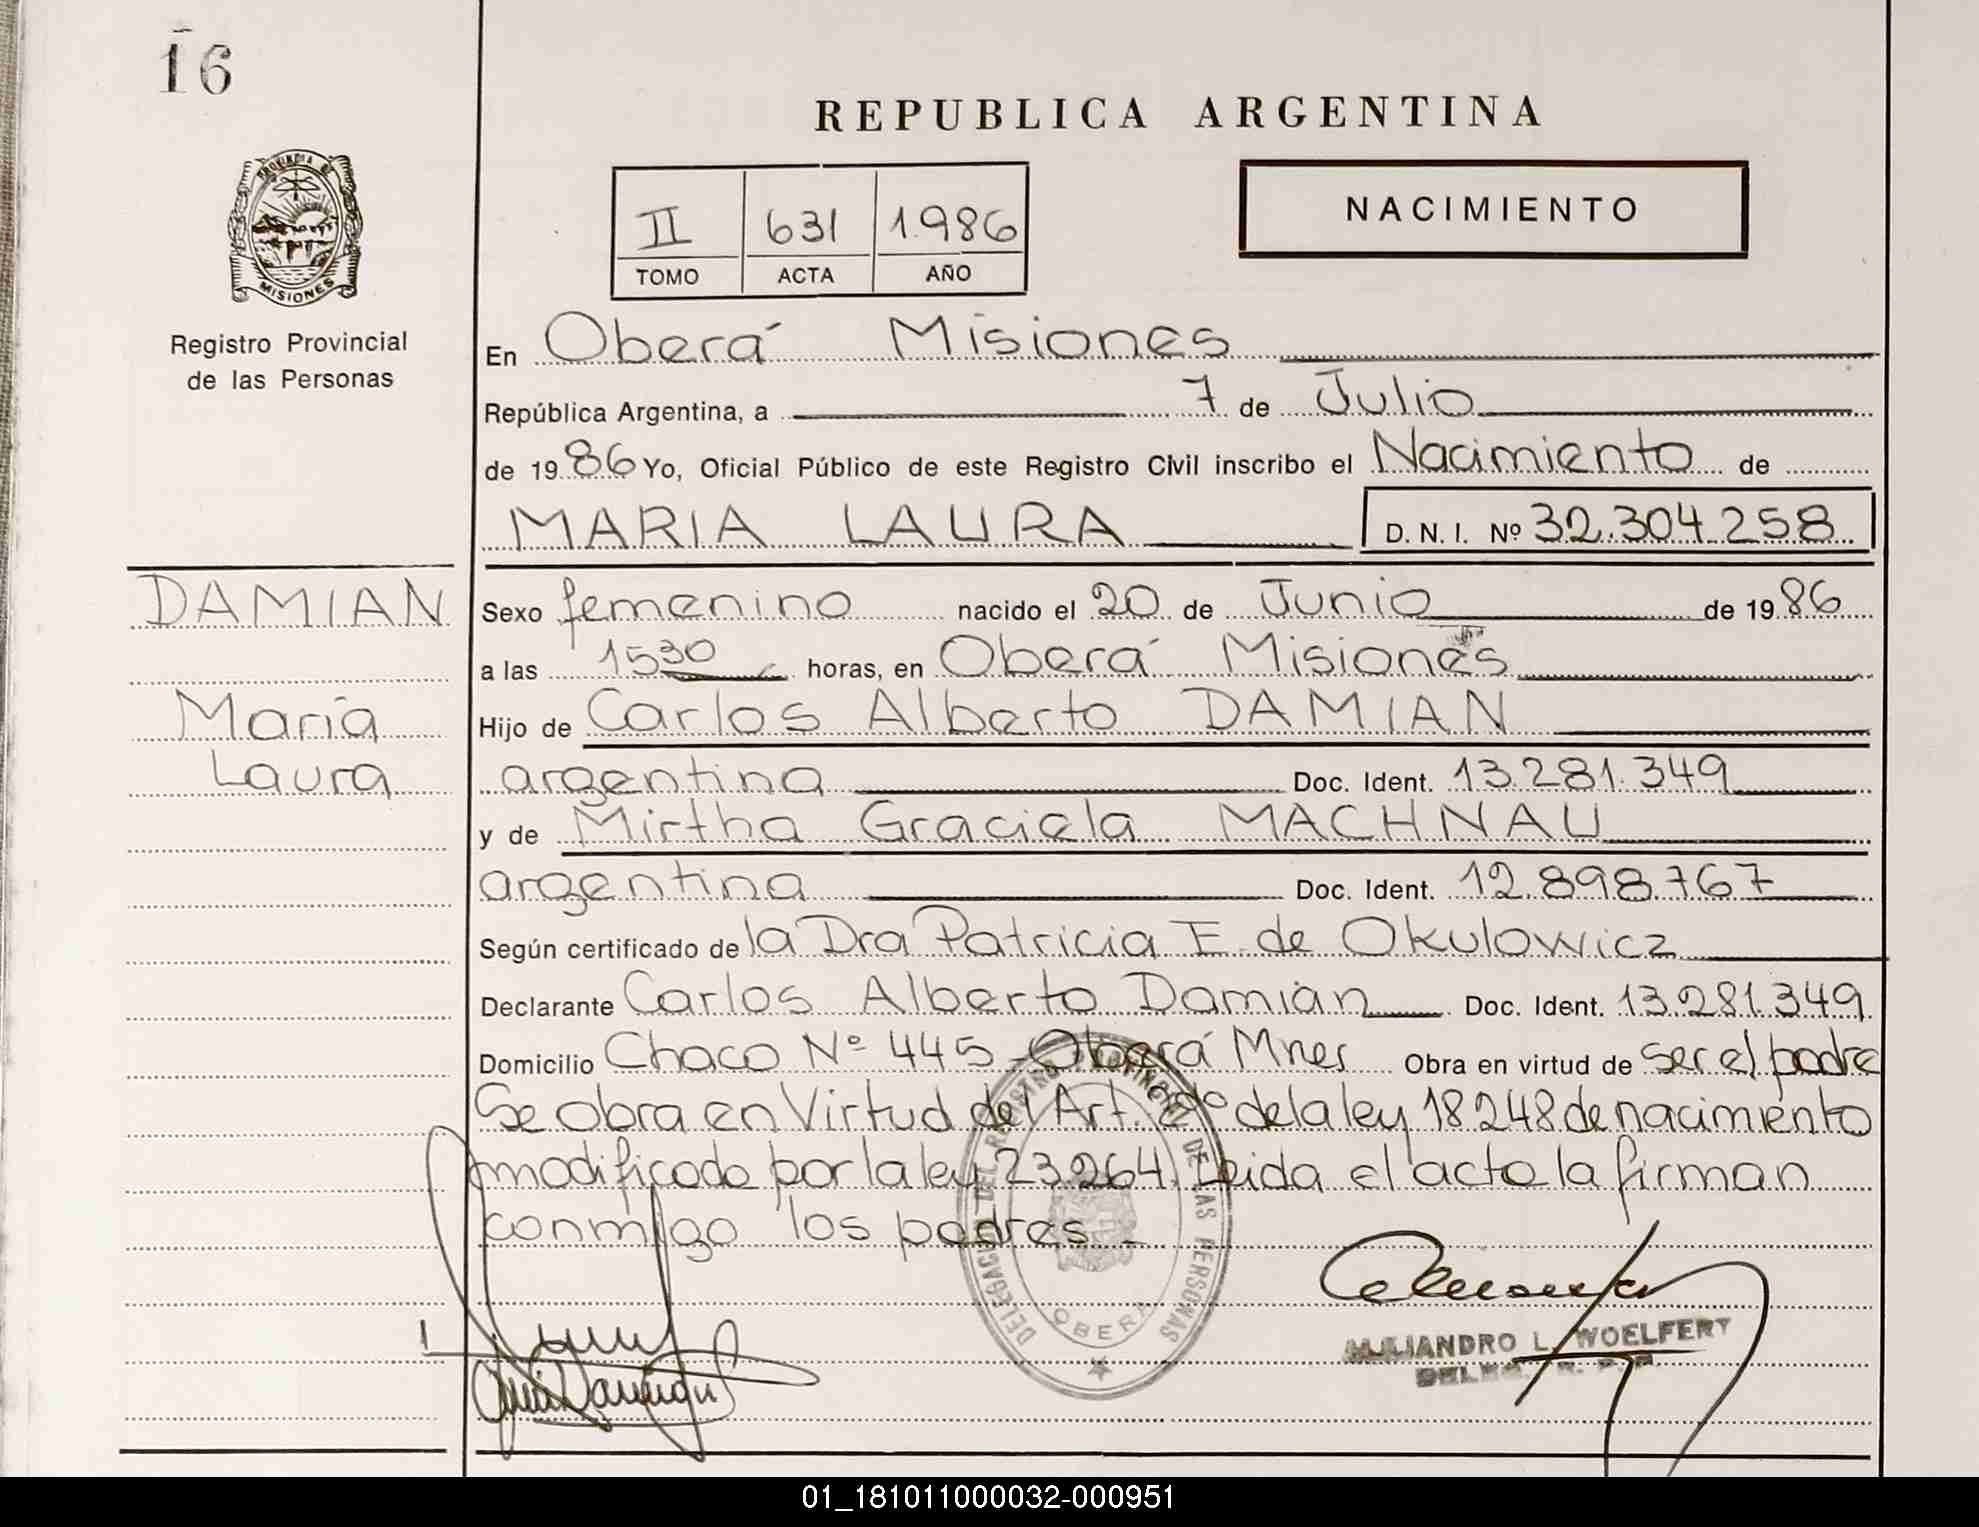 16
REPUBLICA ARGENTINA
II 631 1.986
TOMO ACTA AÑO
NACIMIENTO
PROVINCIA DE
MISIONES
Registro Provincial
de las Personas
DAMIAN
María
Laura
En Oberá Misiones
República Argentina, a 7 de Julio
de 1986 Yo, Oficial Público de este Registro Civil inscribo el Nacimiento de
MARIA LAURA D. N. I. Nº 32.304.258
Sexo femenino nacido el 20 de Junio de 1986
a las 15 30 horas, en Oberá Misiones
Hijo de Carlos Alberto DAMIAN
argentina Doc. Ident. 13.281.349
y de Mirtha Graciela MACHNAU
argentina Doc. Ident. 12.898.767
Según certificado de la Dra Patricia E. de Okulowicz
Declarante Carlos Alberto Damián Doc. Ident. 13.281.349
Domicilio Chaco Nº 445 - Oberá Mnes Obra en virtud de ser el padre
Se obra en Virtud del Art. de la ley 18248 de nacimiento
modificado por la ley 23.264. Leida el acto la firman
conmigo los padres -
DELEGACION DEL REGISTRO PROVINCIAL DE LAS PERSONAS
OBERA
ALEJANDRO L. WOELFERT
01_181011000032-000951